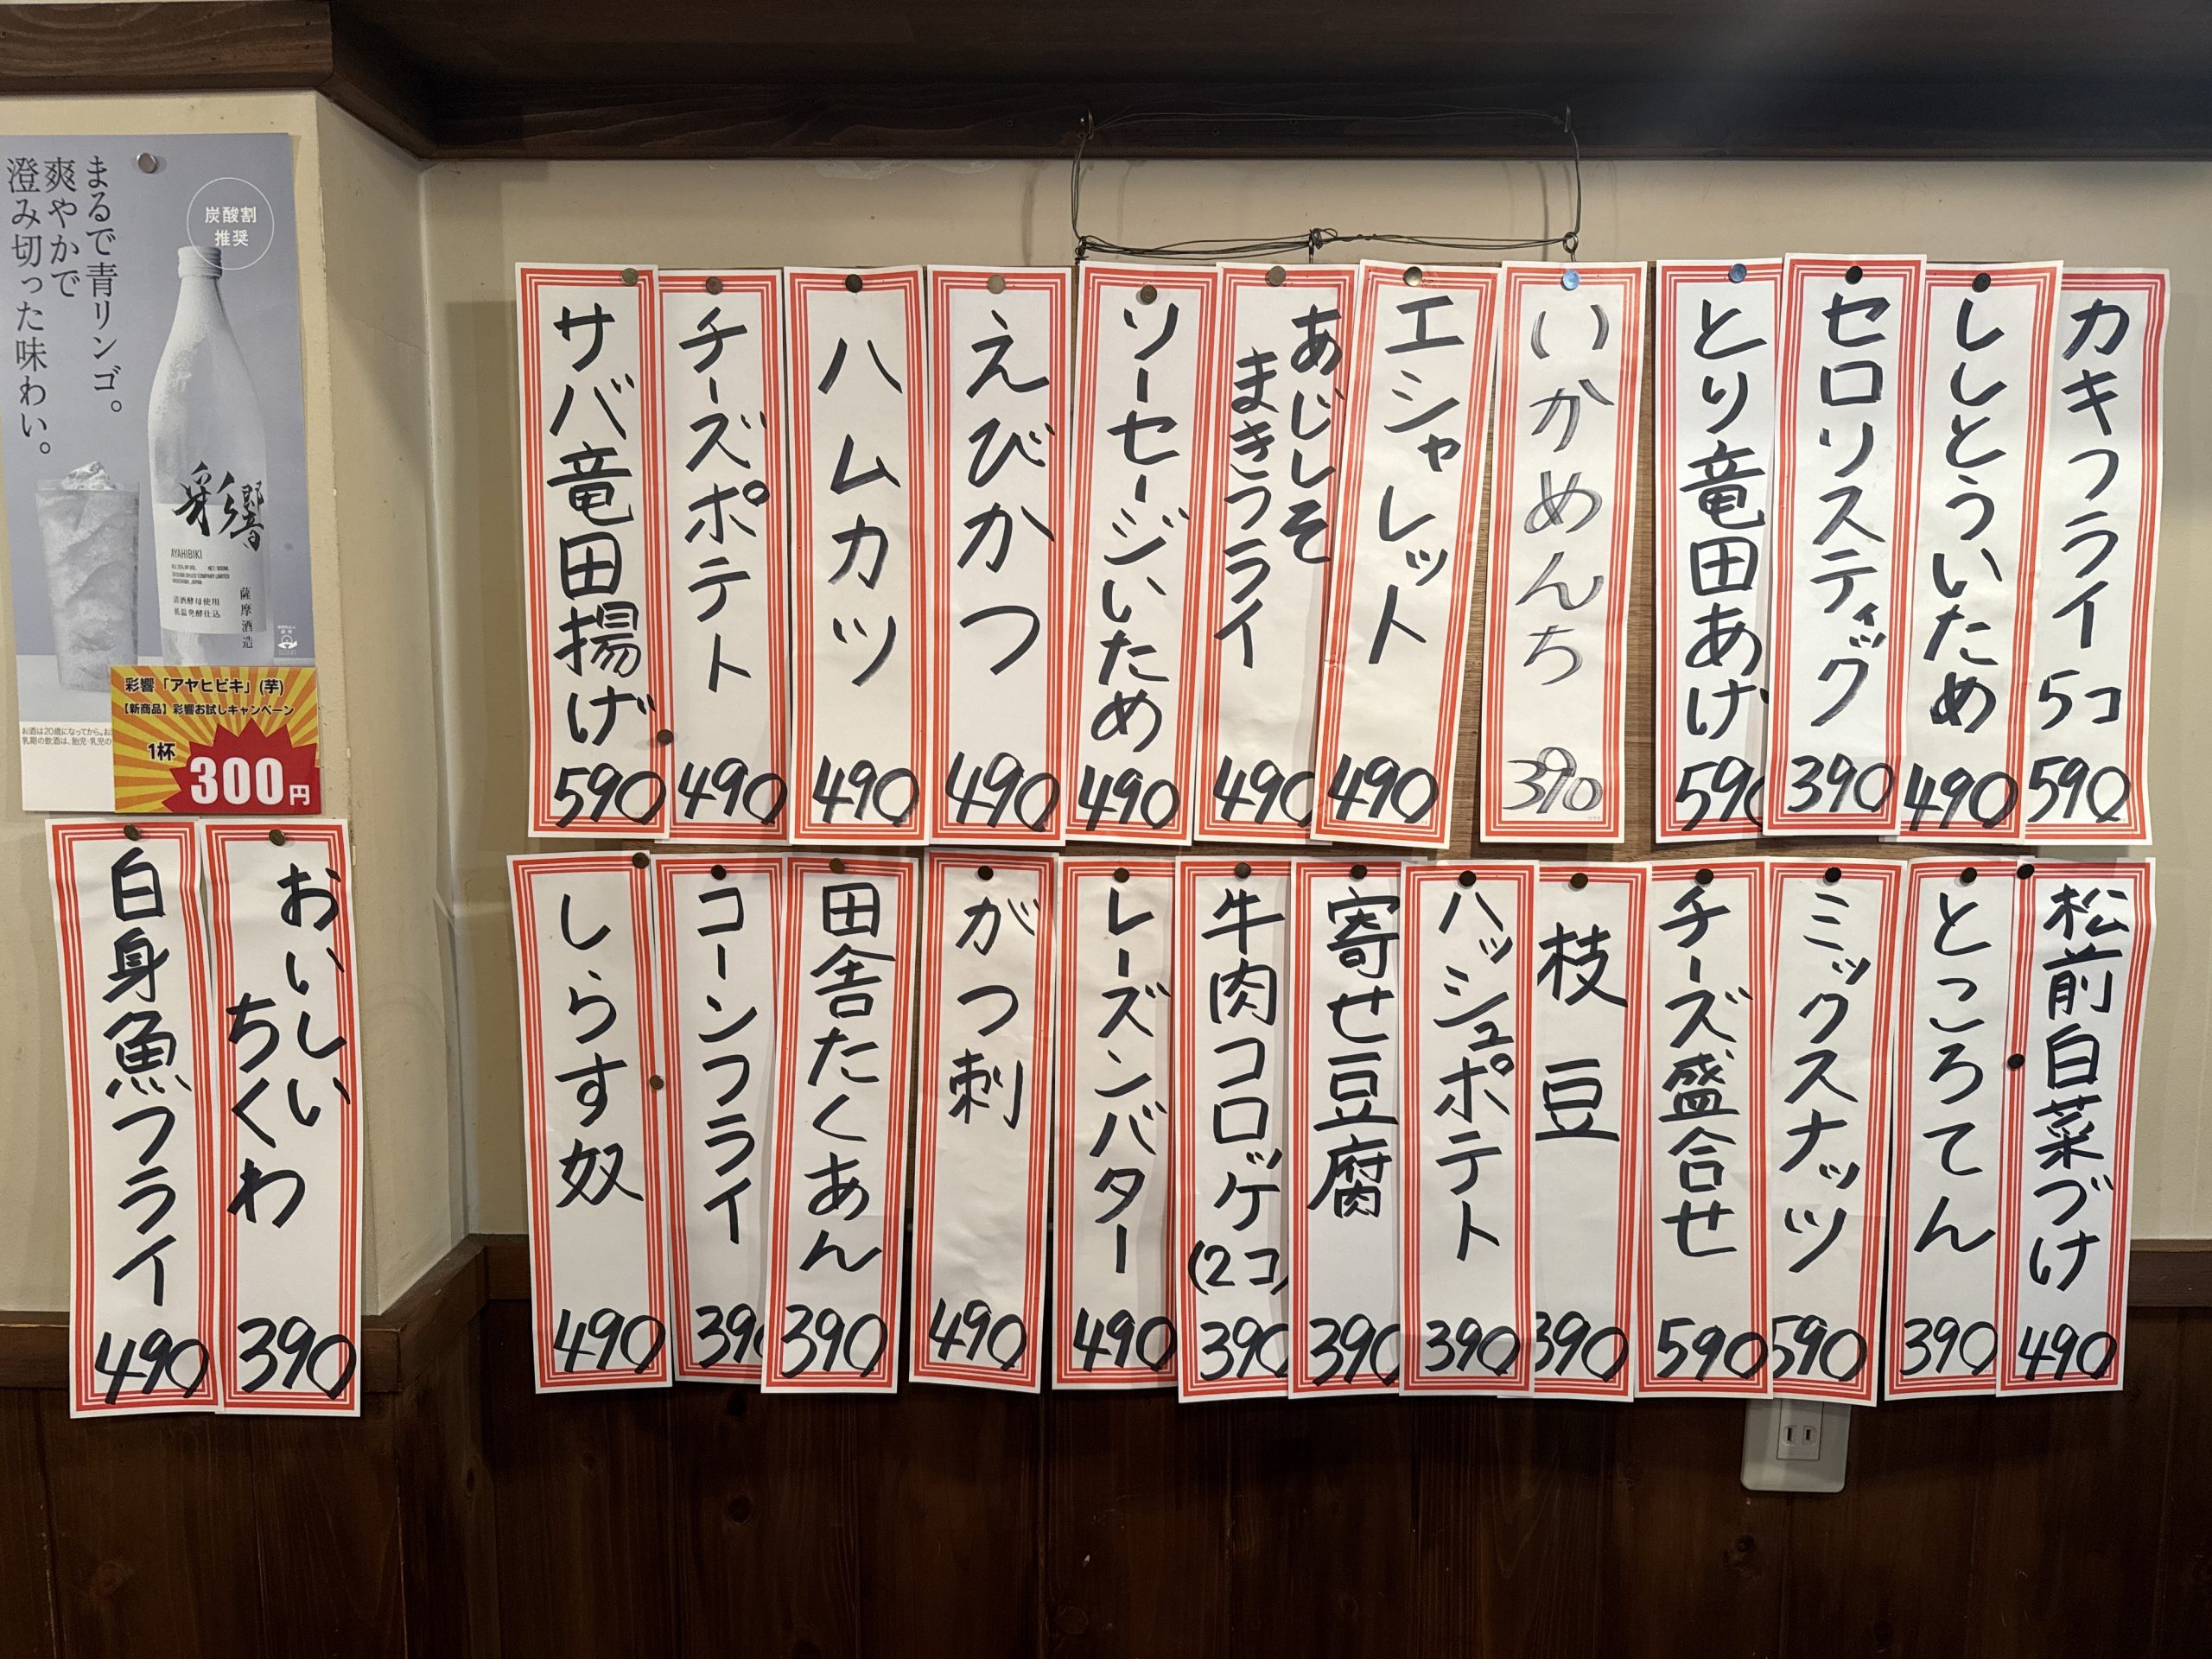 まるで青リンゴ。
爽やかで
澄み切った味わい。
炭酸割
推奨
彩響
AYAHIBIKI
清酒酵母使用
低温発酵仕込
薩摩酒造
彩響「アヤヒビキ」(芋)
【新商品】彩響お試しキャンペーン
1杯
300円
カキフライ
5コ
590
ししとういため
490
セロリスティック
390
とり竜田あげ
590
いかめんち
390
エシャレット
490
あじしそ
まきフライ
490
ソーセージいため
490
えびかつ
490
ハムカツ
490
チーズポテト
490
サバ竜田揚げ
590
松前白菜づけ
490
ところてん
390
ミックスナッツ
590
チーズ盛合せ
590
枝豆
390
ハッシュポテト
390
寄せ豆腐
390
牛肉コロッケ
(2コ)
390
レーズンバター
490
がつ刺
490
田舎たくあん
390
コーンフライ
390
しらす奴
490
おいしい
ちくわ
390
白身魚フライ
490